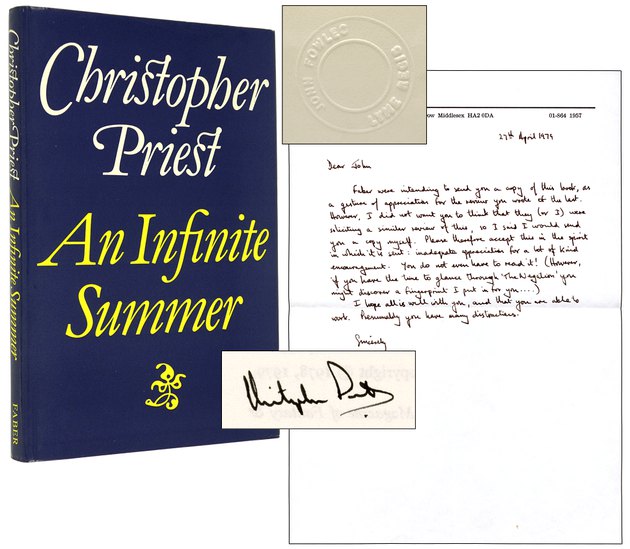 Christopher
Priest
An Infinite
Summer
Christopher Priest An Infinite Summer
FABER
JOHN FOWLES
LYME REGIS
ow Middlesex HA2 0DA 01-864 1957
27th April 1979
Dear John
Faber were intending to send you a copy of this book, as
a gesture of appreciation for the review you wrote of the last.
However, I did not want you to think that they (or I) were
soliciting a similar review of this, so I said I would send
you a copy myself. Please therefore accept this in the spirit
in which it is sent: inadequate appreciation for a lot of kind
encouragement. You do not even have to read it! (However,
if you have the time to glance through 'The Negation' you
might discover a fingerprint I put in for you....)
I hope all is well with you, and that you are able to
work. Presumably you have many distractions.
Sincerely
Christopher Priest